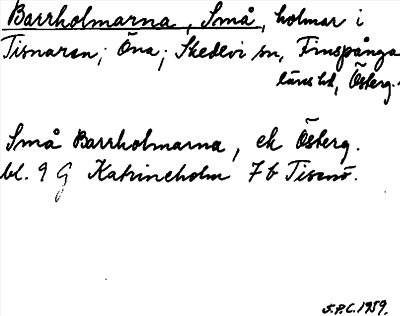 Barrholmarna, Små, holmar i
Tisnaren; Öna; Skedevi sn, Finspånga
läns hd, Österg.
Små Barrholmarna, ek Österg.
bl. 9 G Katrineholm 7 b Tisenö.
S.P.C. 1959.